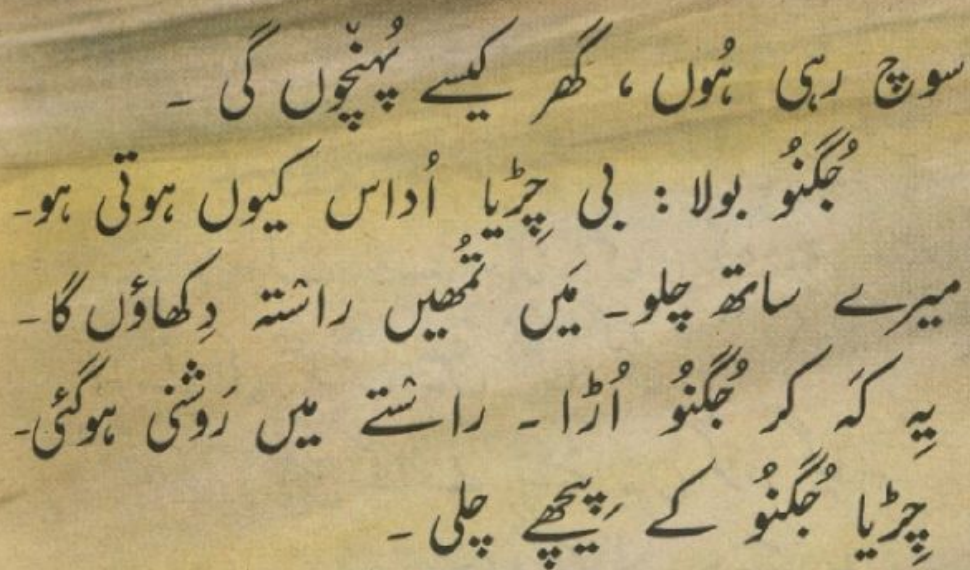 سوچ رہی ہُوں ، گھر کیسے پُہنچُوں گی ۔
جُگنُو بولا : بی چِڑیا اُداس کیوں ہوتی ہو۔
میرے ساتھ چلو۔ مَیں تُمھیں راستہ دِکھاؤں گا۔
یِہ کَہ کر جُگنُو اُڑا ۔ راستے میں رَوشنی ہوگئی۔
چِڑیا جُگنُو کے پِیچھے چلی ۔